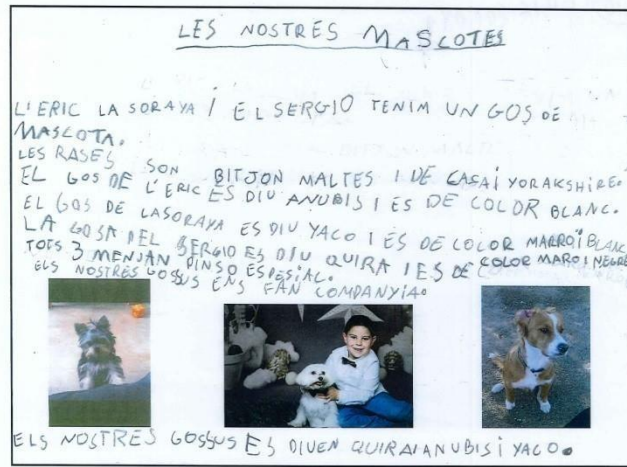 LES NOSTRES MASCOTES
L'ERIC LA SORAYA I EL SERGIO TENIM UN GOS DE
MASCOTA.
LES RASES SON BITJON MALTES I DE CASA I YORAKSHIRE.
EL GOS DE L'ERIC ES DIU ANUBIS I ES DE COLOR BLANC.
EL GOS DE LASORAYA ES DIU YACO I ÉS DE COLOR MARRO I BLANC
LA GOSA DEL SERGIO ES DIU QUIRA I ES DE COLOR MARO I NEGRE
TOTS 3 MENJAN PINSO ESPESIAL.
ELS NOSTRES GOSSUS ENS FAN COMPANYIA.
ELS NOSTRES GOSSUS ES DIUEN QUIRAIANUBISI YACO.